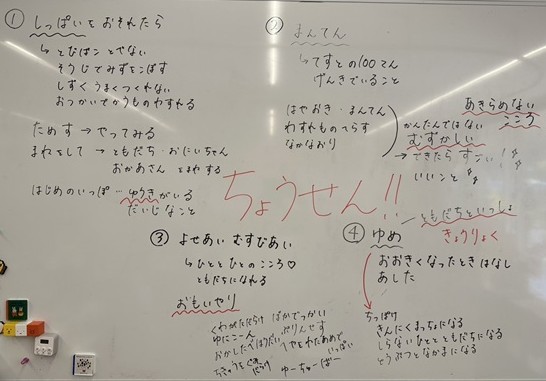 ① しっぱいを おそれたら
↳ とびばこ とべない
そうじでみずをこぼす
しずく うまくつくれない
おつかいでかうものわすれる
ためす → やってみる
まねをして → ともだち・おにいちゃん
おかあさん をまねする
はじめのいっぽ… ゆうきがいる
だいじなこと
② まんてん
↳ てすとの100てん
げんきでいること
はやおき・まんてん
わすれものへらす
なかなおり
かんたんではない
むずかしい
→ できたら すごい!
いいこと
あきらめない
こころ
ちょうせん!!
ともだちといっしょ
きょうりょく
③ よせあい むすびあい
↳ ひとと ひとの こころ♡
ともだちになれる
おもいやり
くわがただらけ
ゆにこーん
おかしたべほうだい
ばかでっかい
ぷりんです
へやをわたあめで
いっぱい
ゆーちゅーばー
④ ゆめ
おおきくなったとき はなし
あした
ちっぽけ
きんにくまっちょになる
しらない ひとと ともだちになる
どうぶつと なかまになる